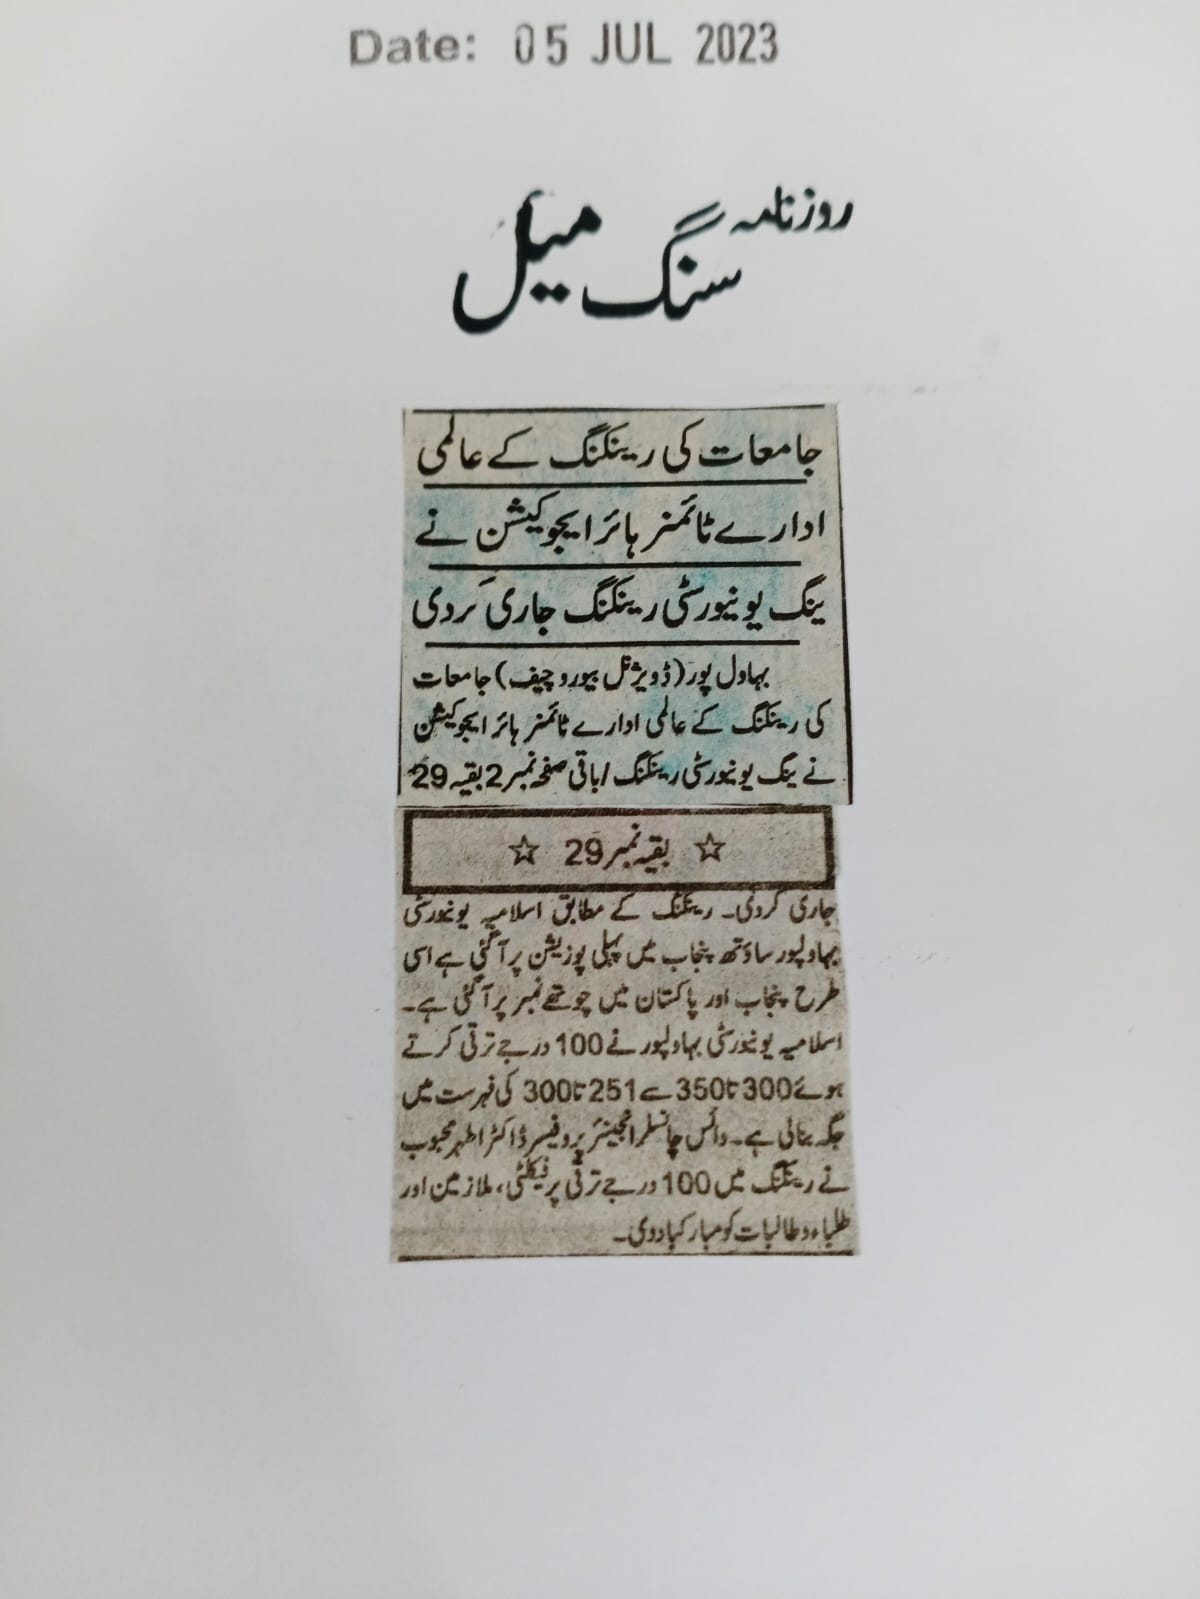 Date: 05 JUL 2023
روزنامہ
سنگ میل
جامعات کی رینکنگ کے عالمی
ادارے ٹائمنر ہائر ایجوکیشن نے
ینگ یونیورسٹی رینکنگ جاری کردی
بہاول پور (ڈویژنل بیورو چیف) جامعات
کی رینکنگ کے عالمی ادارے ٹائمنر ہائر ایجوکیشن
نے ینگ یونیورسٹی رینکنگ / باقی صفحہ نمبر 2 بقیہ 29
☆ بقیہ نمبر 29 ☆
جاری کردی۔ رینکنگ کے مطابق اسلامیہ یونیورسٹی
بہاولپور ساؤتھ پنجاب میں پہلی پوزیشن پر آگئی ہے اسی
طرح پنجاب اور پاکستان میں چوتھے نمبر پر آگئی ہے۔
اسلامیہ یونیورسٹی بہاولپور نے 100 درجے ترقی کرتے
ہوئے 300 تا 350 سے 251 تا 300 کی فہرست میں
جگہ بنالی ہے۔ وائس چانسلر انجینئر پروفیسر ڈاکٹر اطہر محبوب
نے رینکنگ میں 100 درجے ترقی پر فیکلٹی، ملازمین اور
طلباء و طالبات کو مبارکباد دی۔